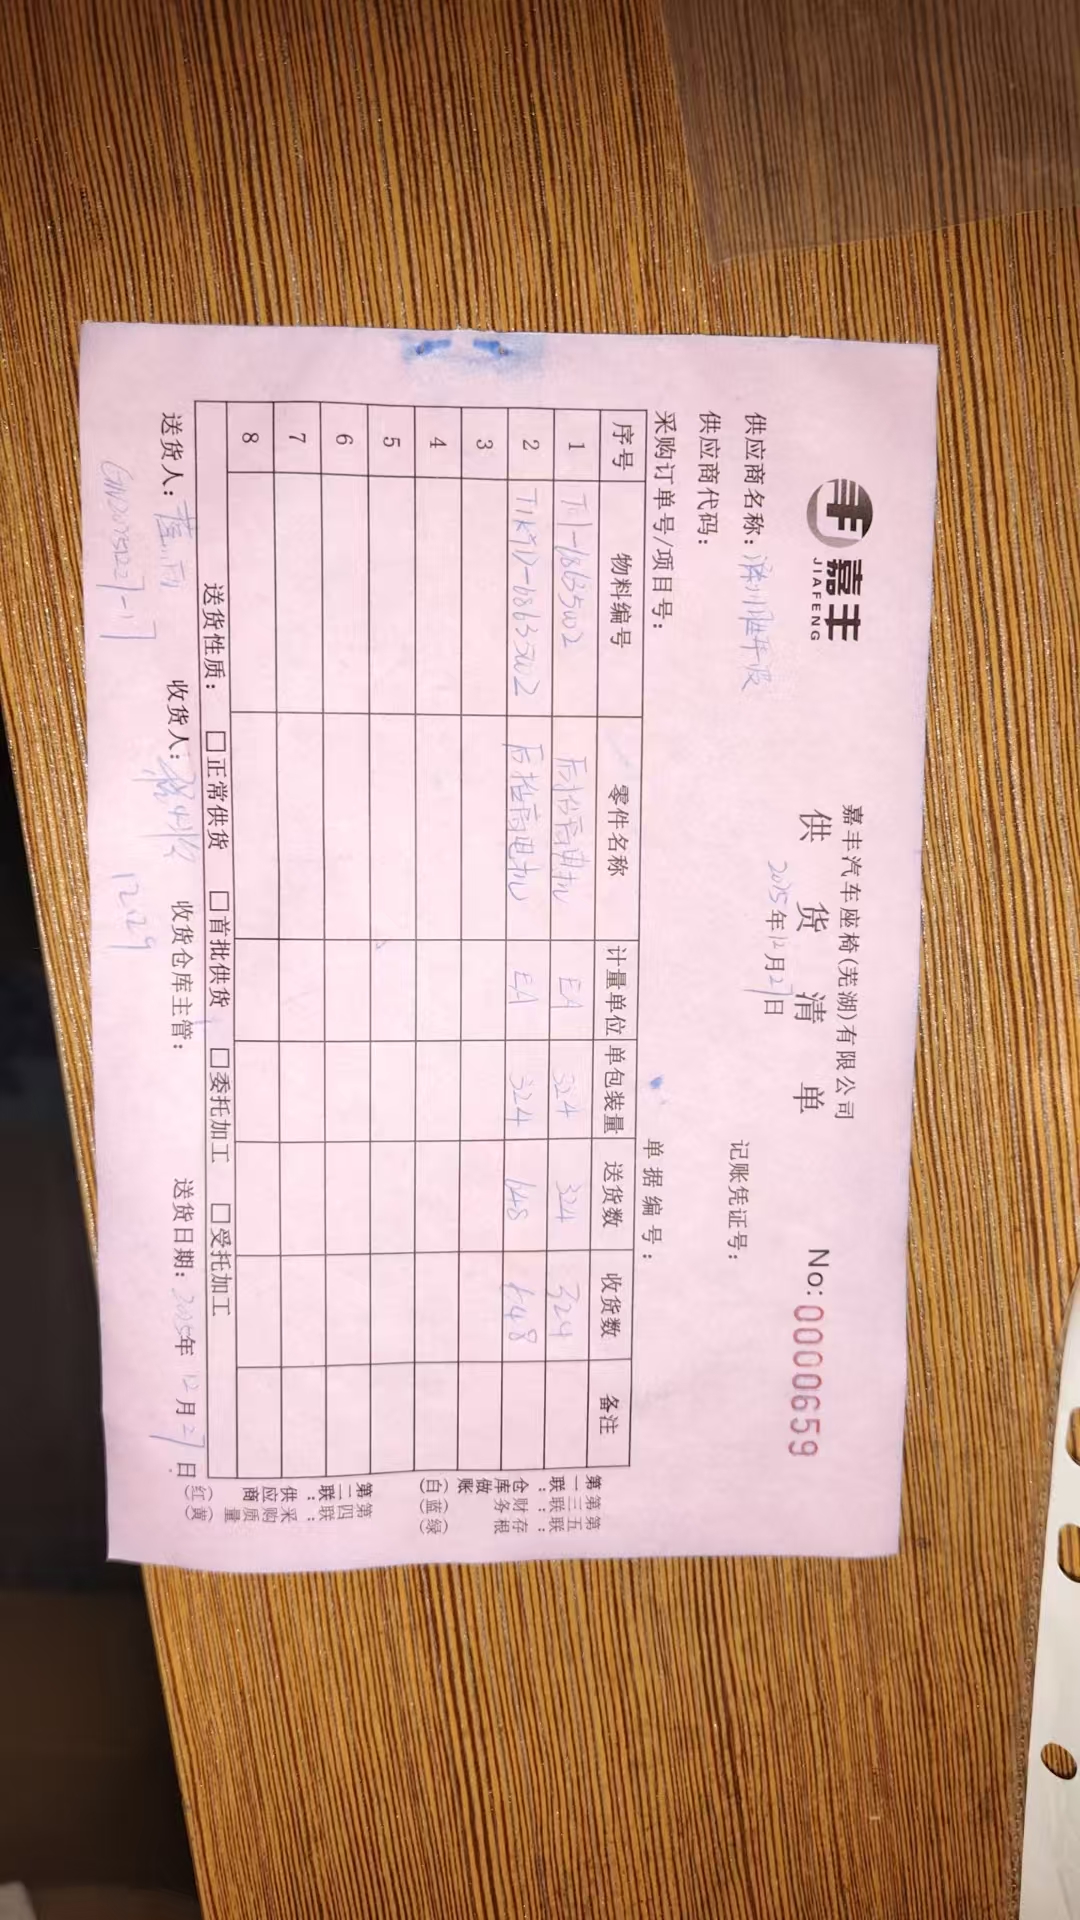 嘉丰
JIAFENG
嘉丰汽车座椅(芜湖)有限公司
供货清单
No:0000659
2025年12月27日
供应商名称:
记账凭证号:
供应商代码:
采购订单号/项目号:
单据编号:
序号 物料编号 零件名称 计量单位 单包装量 送货数 收货数 备注
1 EA 324 324 324
2 T1KYD-6863502 后抬高电机 EA 324 648 648
3
4
5
6
7
8
送货性质: □正常供货 □首批供货 □委托加工 □受托加工
送货人: 收货人: 收货仓库主管: 送货日期: 2025年12月27日
12.29
第一联:仓库做账(白)
第三联:财务(蓝)
第五联:存根(绿)
第二联:供应商(红)
第四联:采购质量(黄)